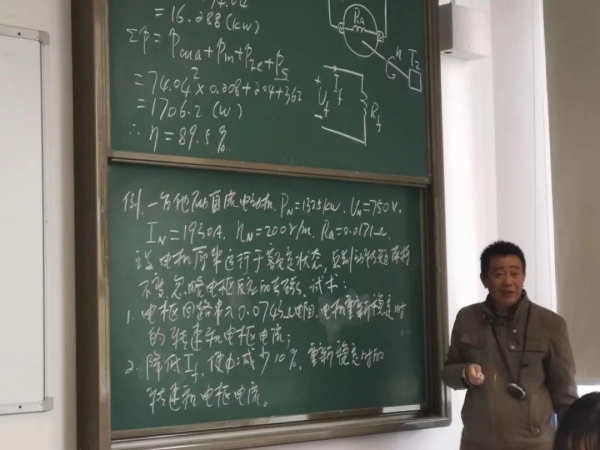 = 16.288 (kW)
Σp = pcua + pm + pFe + ps
= 74.04² × 0.208 + 204 + 362
= 1706.2 (W)
∴ η = 89.5%
Ra
n
T2
Uf
If
Rf
例. 一台他励直流电动机, PN=1325kW, UN=750V,
IN=1930A, nN=200r/m, Ra=0.0171Ω
设电机原来运行于额定状态, 负载转矩保持
不变, 忽略电枢反应的影响, 试求:
1. 电枢回路串入0.0743Ω电阻, 电机重新稳定时
的转速和电枢电流;
2. 降低If, 使Φ减少10%, 重新稳定时的
转速和电枢电流。